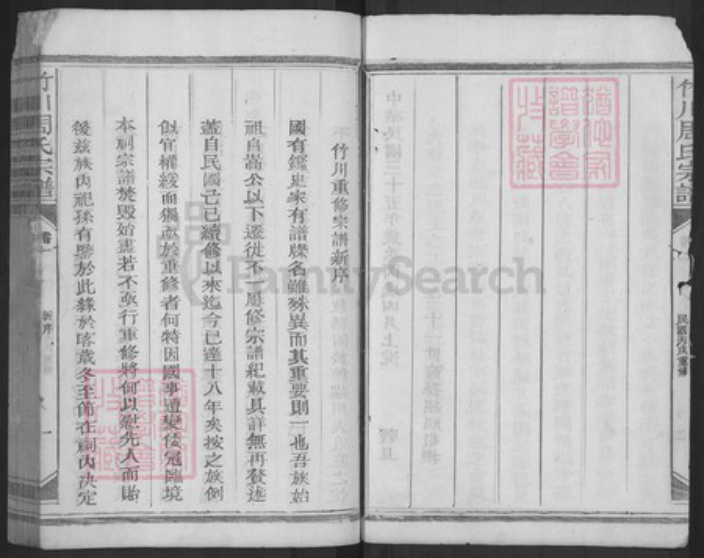 竹川周氏宗譜
民國丙戌重修
猶他家
譜學會
收藏
竹川重修宗譜新序
國有鑑史家有譜牒名雖殊異而其重要則一也吾族始
祖自嵩公以下遷徙不一歷修宗譜紀載具詳無再贅述
蓋自民國己巳續修以來迄今已達十八年矣按之族例
似宜權緩而獨亟於重修者何特因國事遭變倭寇臨境
本祠宗譜焚毀殆盡若不亟行重修將何以慰先人而貽
後茲族內祀孫有鑒於此緣於客歲冬至節在祠內決定
竹川周氏宗譜
卷一
新序
一
猶他家
譜學會
收藏
FamilySearch